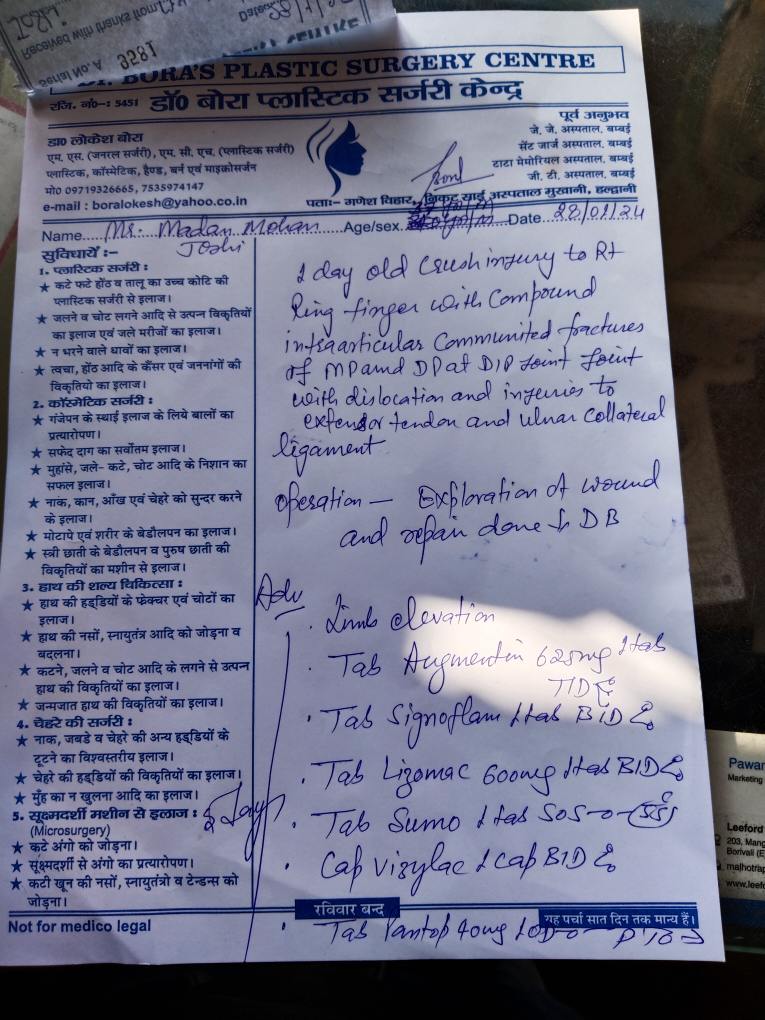 Received with thanks from
Dated
Serial No. A 3581
DR. BORA'S PLASTIC SURGERY CENTRE
रजि. नं०-: 5451 डॉ0 बोरा प्लास्टिक सर्जरी केन्द्र
डा0 लोकेश बोरा
एम. एस. (जनरल सर्जरी), एम. सी. एच. (प्लास्टिक सर्जरी)
प्लास्टिक, कॉस्मेटिक, हैण्ड, बर्न एवं माइक्रोसर्जन
मो0 09719326665, 7535974147
e-mail : boralokesh@yahoo.co.in
पूर्व अनुभव
जे. जे. अस्पताल, बम्बई
सेंट जार्ज अस्पताल, बम्बई
टाटा मेमोरियल अस्पताल, बम्बई
जी. टी. अस्पताल, बम्बई
पताः– गणेश विहार, निकट साईं अस्पताल मुखानी, हल्द्वानी
Name Mr. Madan Mohan Joshi Age/sex Date 28/01/24
सुविधायें :–
1. प्लास्टिक सर्जरी :
★ कटे फटे होंठ व तालू का उच्च कोटि की
प्लास्टिक सर्जरी से इलाज।
★ जलने व चोट लगने आदि से उत्पन्न विकृतियों
का इलाज एवं जले मरीजों का इलाज।
★ न भरने वाले घावों का इलाज।
★ त्वचा, होंठ आदि के कैंसर एवं जननांगों की
विकृतियो का इलाज।
2. कॉस्मेटिक सर्जरी :
★ गंजेपन के स्थाई इलाज के लिये बालों का
प्रत्यारोपण।
★ सफेद दाग का सर्वोतम इलाज।
★ मुहांसे, जले- कटे, चोट आदि के निशान का
सफल इलाज।
★ नाक, कान, आँख एवं चेहरे को सुन्दर करने
के इलाज।
★ मोटापे एवं शरीर के बेडौलपन का इलाज।
★ स्त्री छाती के बेडौलपन व पुरुष छाती की
विकृतियों का मशीन से इलाज।
3. हाथ की शल्य चिकित्सा :
★ हाथ की हड्डियों के फ्रेक्चर एवं चोटों का
इलाज।
★ हाथ की नसों, स्नायुतंत्र आदि को जोड़ना व
बदलना।
★ कटने, जलने व चोट आदि के लगने से उत्पन
हाथ की विकृतियों का इलाज।
★ जन्मजात हाथ की विकृतियों का इलाज।
4. चेहरे की सर्जरी :
★ नाक, जबड़े व चेहरे की अन्य हड्डियों के
टूटने का विश्वस्तरीय इलाज।
★ चेहरे की हड्डियों की विकृतियों का इलाज।
★ मुँह का न खुलना आदि का इलाज।
5. सूक्ष्मदर्शी मशीन से इलाज :
(Microsurgery)
★ कटे अंगो को जोड़ना।
★ सूक्ष्मदर्शी से अंगो का प्रत्यारोपण।
★ कटी खून की नसों, स्नायुतंत्रो व टेन्डन्स को
जोड़ना।
1 day old Crush injury to Rt
Ring finger with Compound
intraarticular Communited fractures
of MP and DP at DIP Joint Joint
with dislocation and injuries to
extensor tendon and ulnar Collateral
ligament
Operation — Exploration of wound
and repair done DB
Adv
· Limb elevation
· Tab Augmentin 625mg 1 tab
TID
· Tab Signoflam 1 tab BID
· Tab Lizomac 600mg 1 tab BID
· Tab Sumo 1 tab SOS
· Cap Vizylac 1 cap BID
· Tab Pantop 40mg 1 OD
Days
रविवार बन्द
यह पर्चा सात दिन तक मान्य हैं।
Not for medico legal
Pawan
Marketing
Leeford
203, Mang
Borivali (E
malhotrap
www.leefo